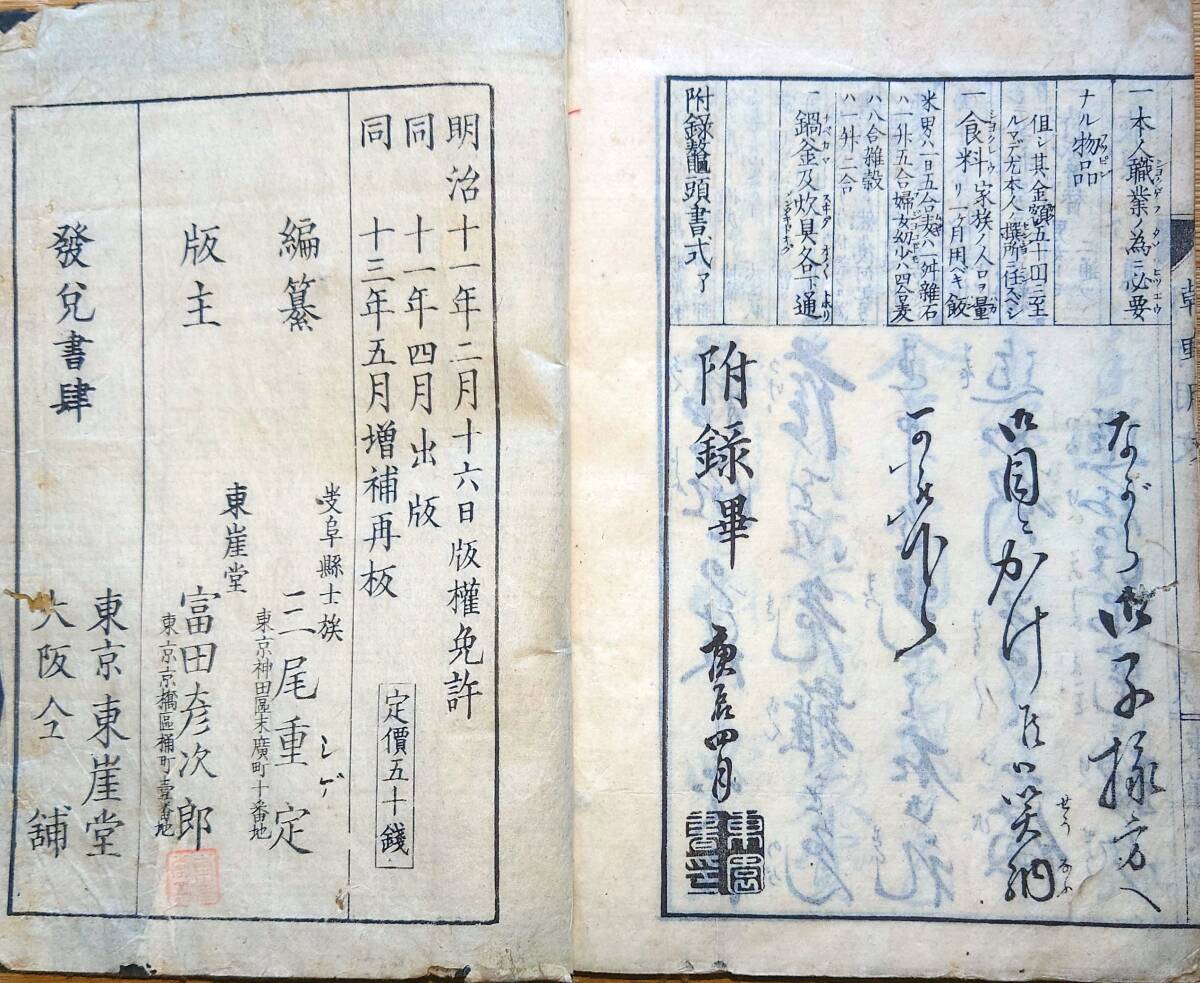 一本人職業ノ為ニ必要
ナル物品
但シ其金額五十円ニ至
ルマデ尤本人ノ撰所ニ任スベシ
一食料 家族ノ人口ヲ量
リ一ケ月用ベキ飯
米男ハ一日五合麦ハ一舛雑石
ハ一升五合婦女幼少ハ四合麦
ハ八合雑穀
ハ一升二合
一鍋釜及炊具各下通
附録鼇頭書式了
ながら御子様方へ
御目にかけ候御笑納
附録畢
庚辰四月
明治十一年二月十六日版權免許
同 十一年四月出版
同 十三年五月増補再板
定價五十錢
岐阜縣士族
編纂 三尾重定
シゲ
東京神田區末廣町十番地
東崖堂
版主 富田彦次郎
東京京橋區桶町壹番地
發兌書肆
東京東崖堂
大阪仝舗